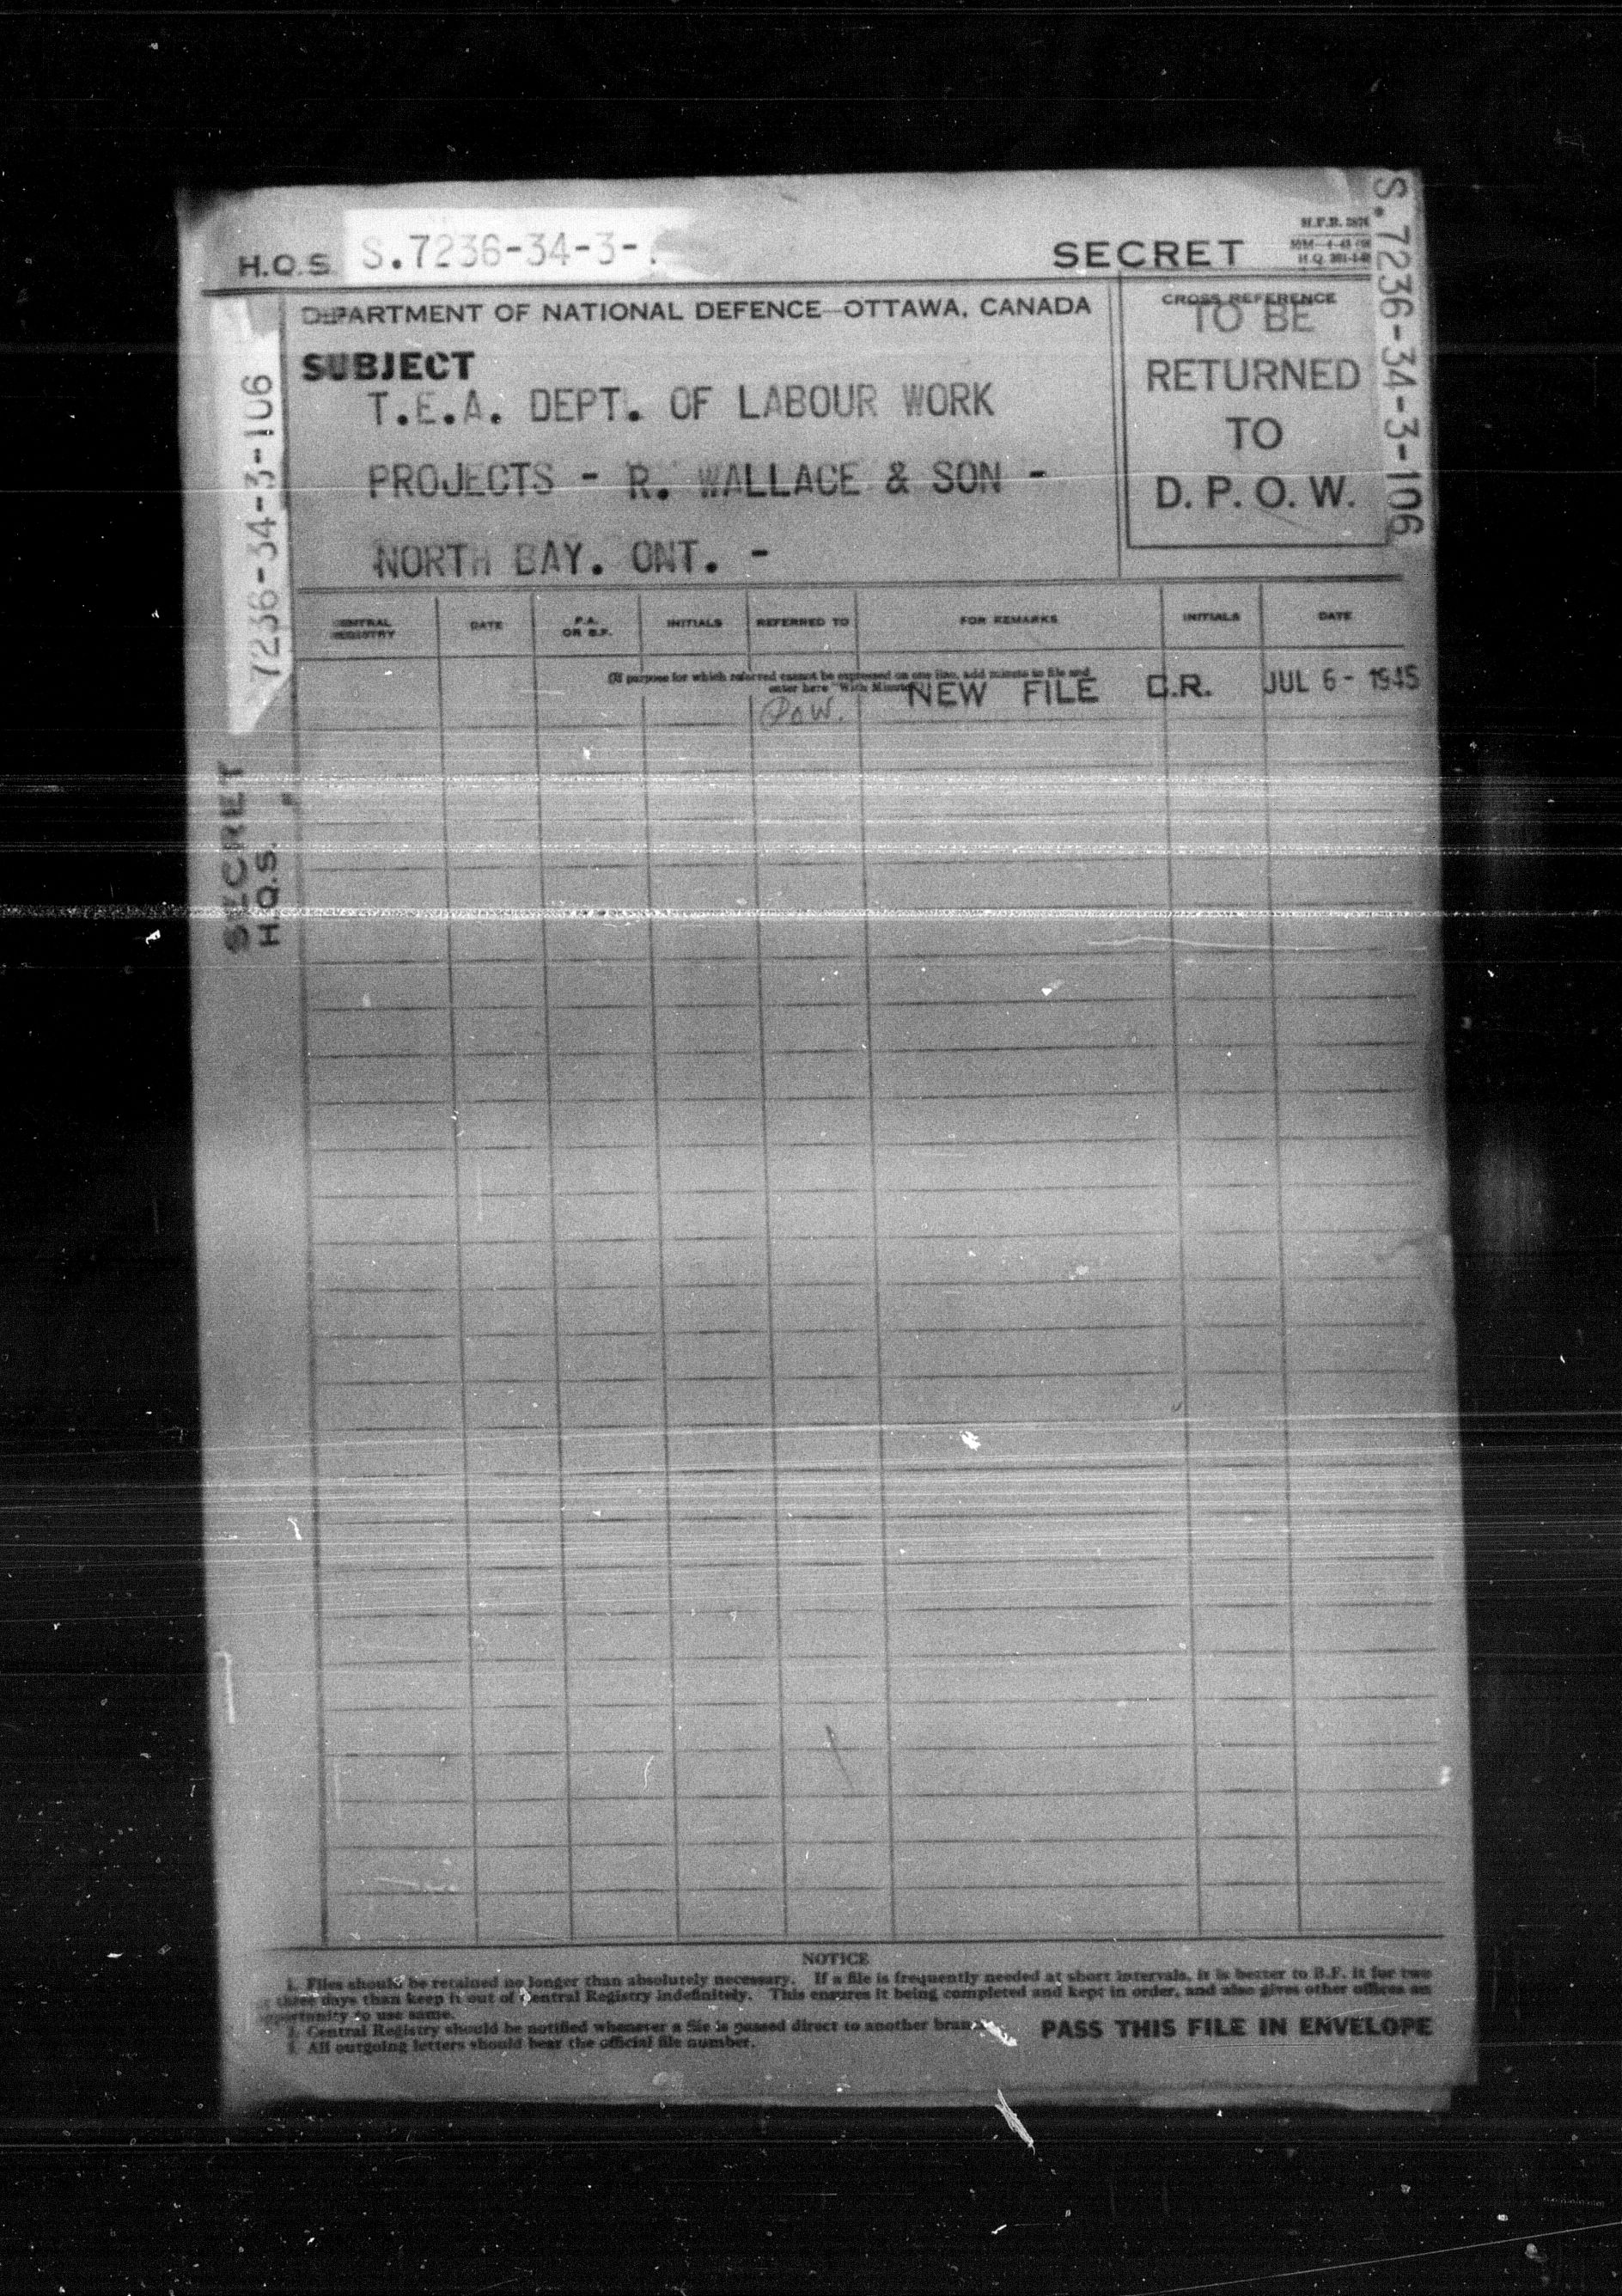 H.Q.S. S.7236-34-3-
SECRET
DEPARTMENT OF NATIONAL DEFENCE—OTTAWA, CANADA
SUBJECT
T.E.A. DEPT. OF LABOUR WORK
PROJECTS - R. WALLACE & SON -
NORTH BAY. ONT. -
CROSS REFERENCE
TO BE
RETURNED
TO
D. P. O. W.
S.7236-34-3-106
7236-34-3-106
SECRET
H.Q.S.
CENTRAL REGISTRY DATE P.A. OR B.F. INITIALS REFERRED TO FOR REMARKS INITIALS DATE
(If purpose for which referred cannot be expressed on one line, add minute to file and
enter here "With Minute")
POW. NEW FILE C.R. JUL 6 - 1945
NOTICE
1. Files should be retained no longer than absolutely necessary. If a file is frequently needed at short intervals, it is better to B.F. it for two
or three days than keep it out of Central Registry indefinitely. This ensures it being completed and kept in order, and also gives other offices an
opportunity to use same.
2. Central Registry should be notified whenever a file is passed direct to another branch
3. All outgoing letters should bear the official file number.
PASS THIS FILE IN ENVELOPE